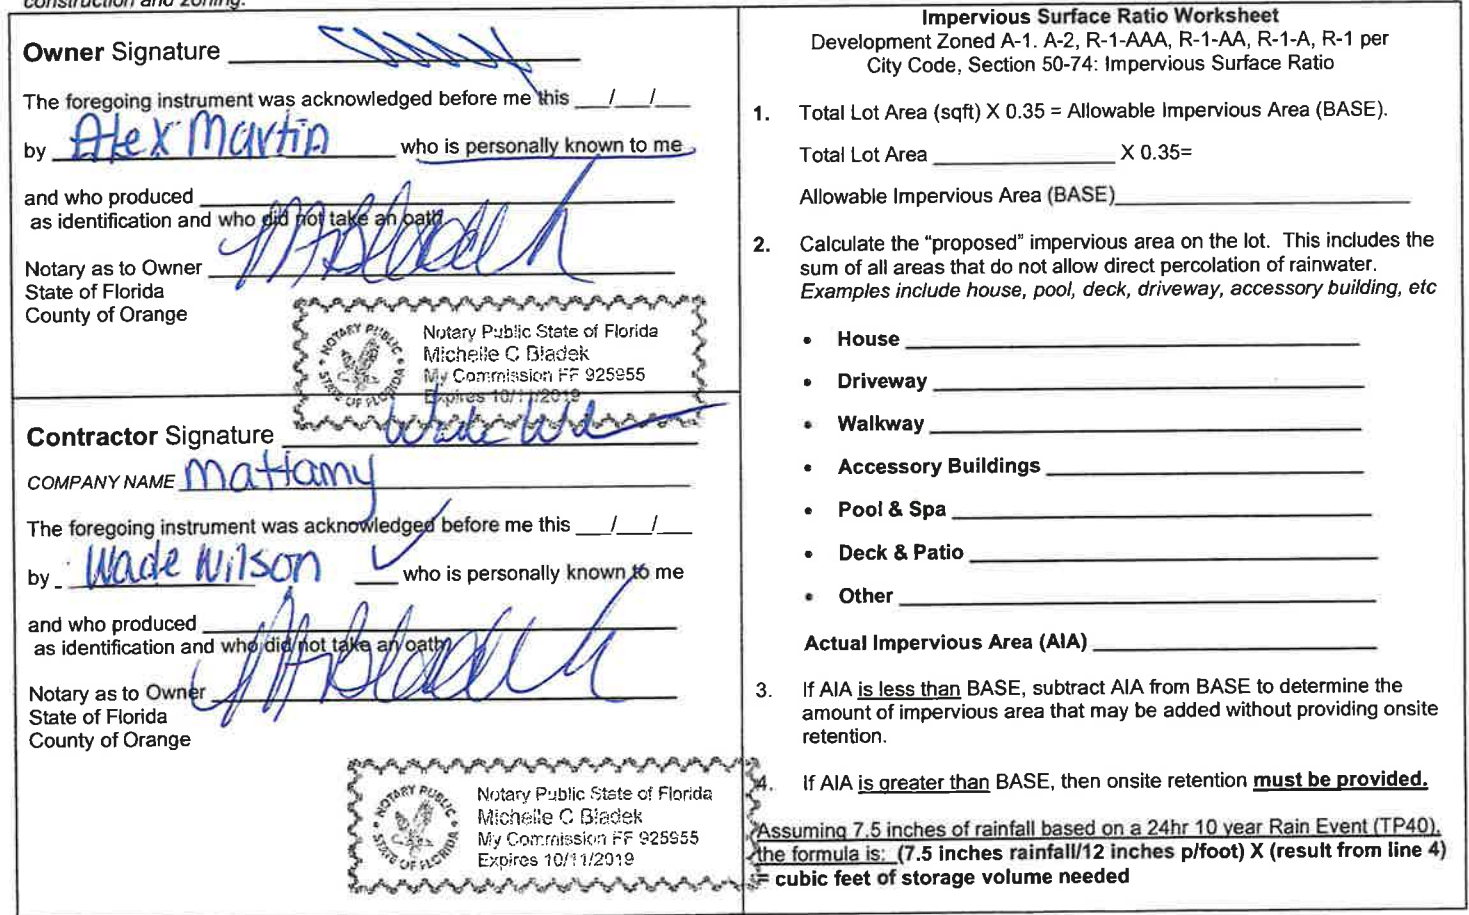 construction and zoning.
Owner Signature
The foregoing instrument was acknowledged before me this ___/___/___
by Alex Martin who is personally known to me
and who produced
as identification and who did not take an oath
Notary as to Owner
State of Florida
County of Orange
Notary Public State of Florida
Michelle C Bladek
My Commission FF 925955
Expires 10/11/2019
NOTARY PUBLIC
STATE OF FLORIDA
Contractor Signature
COMPANY NAME Mattamy
The foregoing instrument was acknowledged before me this ___/___/___
by Wade Wilson ___ who is personally known to me
and who produced
as identification and who did not take an oath
Notary as to Owner
State of Florida
County of Orange
Notary Public State of Florida
Michelle C Bladek
My Commission FF 925955
Expires 10/11/2019
NOTARY PUBLIC
STATE OF FLORIDA
Impervious Surface Ratio Worksheet
Development Zoned A-1. A-2, R-1-AAA, R-1-AA, R-1-A, R-1 per
City Code, Section 50-74: Impervious Surface Ratio
1. Total Lot Area (sqft) X 0.35 = Allowable Impervious Area (BASE).
Total Lot Area ____________ X 0.35=
Allowable Impervious Area (BASE)____________
2. Calculate the “proposed” impervious area on the lot. This includes the
sum of all areas that do not allow direct percolation of rainwater.
Examples include house, pool, deck, driveway, accessory building, etc
• House
• Driveway
• Walkway
• Accessory Buildings
• Pool & Spa
• Deck & Patio
• Other
Actual Impervious Area (AIA)
3. If AIA is less than BASE, subtract AIA from BASE to determine the
amount of impervious area that may be added without providing onsite
retention.
4. If AIA is greater than BASE, then onsite retention must be provided.
Assuming 7.5 inches of rainfall based on a 24hr 10 year Rain Event (TP40),
the formula is: (7.5 inches rainfall/12 inches p/foot) X (result from line 4)
= cubic feet of storage volume needed